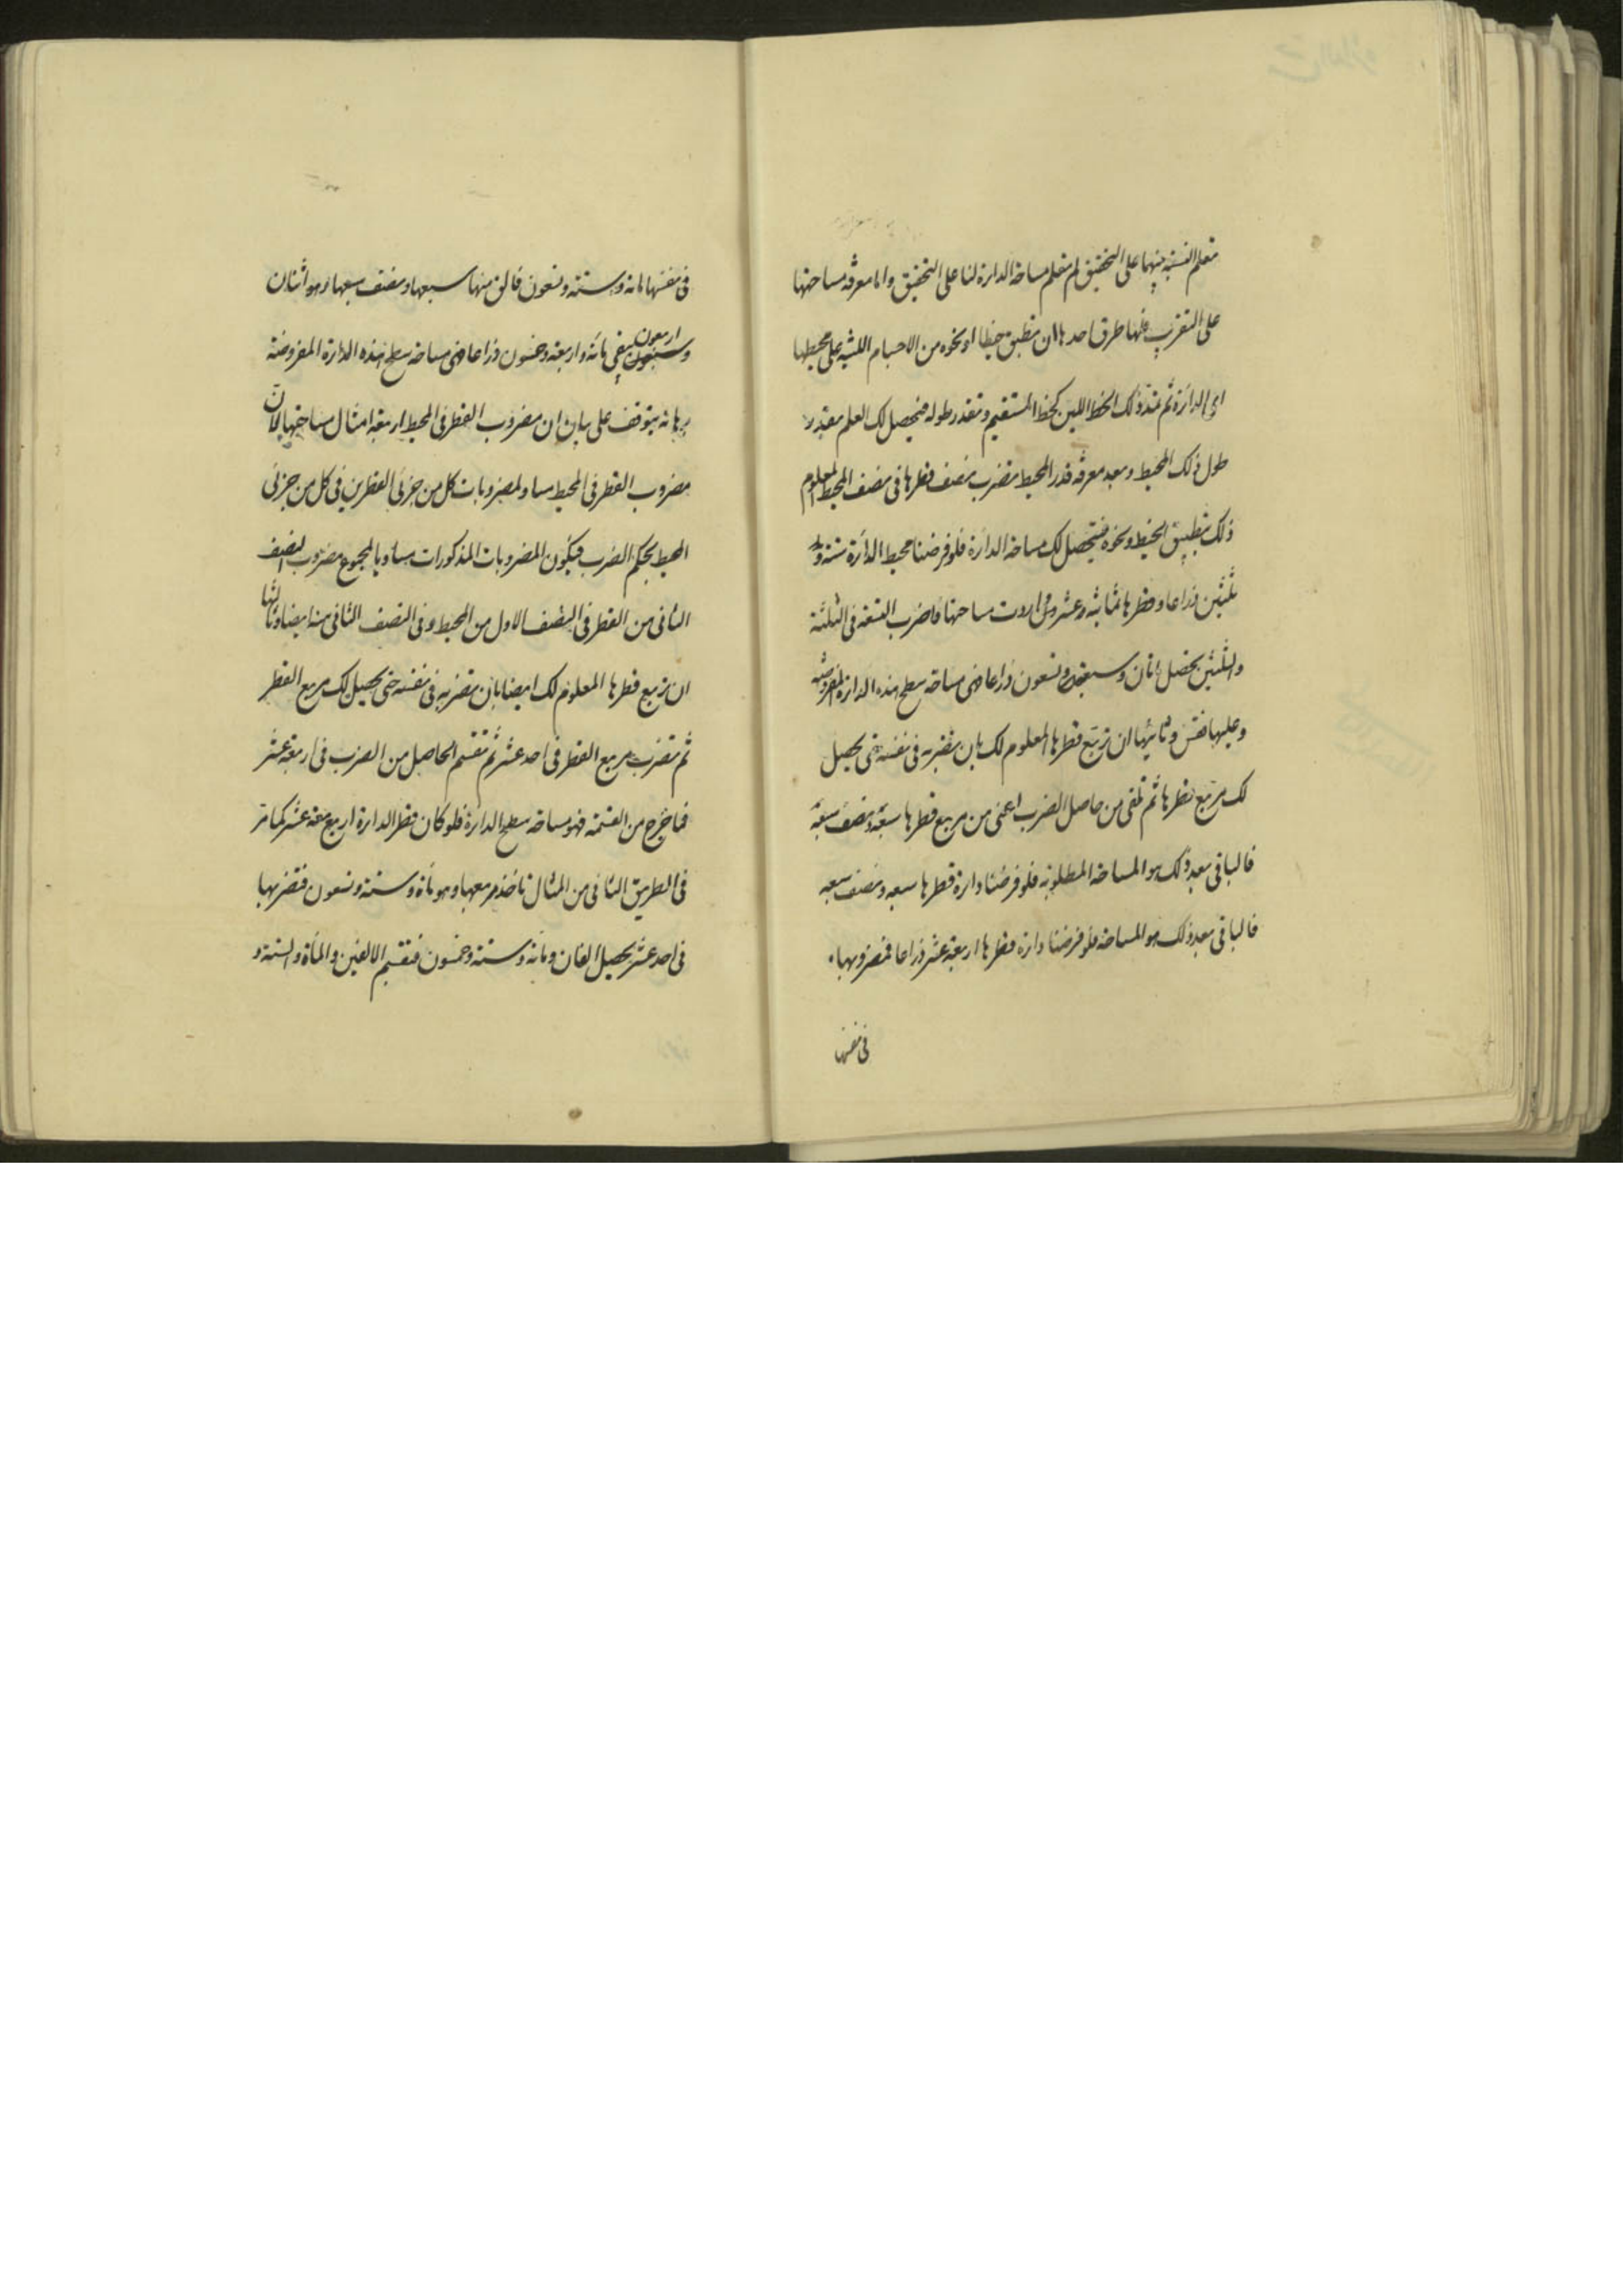 تعلم النسبة بينهما على التحقيق لم تعلم مساحة الدائرة لنا على التحقيق واما معرفة مساحتها
على التقريب فلها طرق احدها ان تطبق خيطا او نحوه من الاجسام اللينة على محيطها
اى الدائرة ثم تمد ذلك الخط اللين كخط المستقيم وتقدر طوله فيحصل لك العلم بقدر
طول ذلك المحيط وبعد معرفة قدر المحيط تضرب نصف قطرها فى نصف المحيط المعلوم
ذلك بتطبيق الخيط ونحوه فيتحصل لك مساحة الدائرة فلو فرضنا محيط الدائرة ستة و
ثلثين ذراعا وقطرها ثمانية وعشر واردت مساحتها فاضرب التسعة فى الثلثة
والثلثين يحصل مائتان وسبعة وتسعون ذراعا هى مساحة سطح هذه الدائرة المفروضة
وعليها فقس وثانيها ان تربع قطرها المعلوم لك بان تضربه فى نفسه حتى يحصل
لك مربع قطرها ثم تلقى من حاصل الضرب اعنى من مربع قطرها سبعه ونصف سبعه
فالباقى بعد ذلك هو المساحة المطلوبة فلو فرضنا دائرة قطرها سبعه ونصف سبعه
فالباقى بعد ذلك هو المساحة فلو فرضنا دائرة قطرها اربعة عشر ذراعا فمضروبها
فى نفسها
فى نفسها مائة وستة وتسعون فالق منها سبعها ونصف سبعها وهو اثنان
اربعون
وسبعون يبقى مائة واربعة وخمسون ذراعا هى مساحة سطح هذه الدائرة المفروضة
برهانه يتوقف على بيان ان مضروب القطر فى المحيط اربعة امثال مساحتها لان
مضروب القطر فى المحيط مساو لمضروبات كل من جزئى القطرين فى كل من جزئى
المحيط بحكم الضرب فيكون المضروبات المذكورات مساويا لمجموع مضروب النصف
الثانى من القطر فى النصف الاول من المحيط وفى النصف الثانى منه ايضا وثالثها
ان تربع قطرها المعلوم لك ايضا بان تضربه فى نفسه حتى يحصل لك مربع القطر
ثم تضرب مربع القطر فى احد عشر ثم تقسم الحاصل من الضرب فى اربعة عشر
فما خرج من القسمة فهو مساحة سطح الدائرة فلو كان قطر الدائرة اربعة عشر كما مر
فى الطريق الثانى من المثال تاخذ مربعها وهو مائة وستة وتسعون فتضربها
فى احد عشر يحصل الفان ومائة وستة وخمسون فتقسم الالفين والمائة والستة و